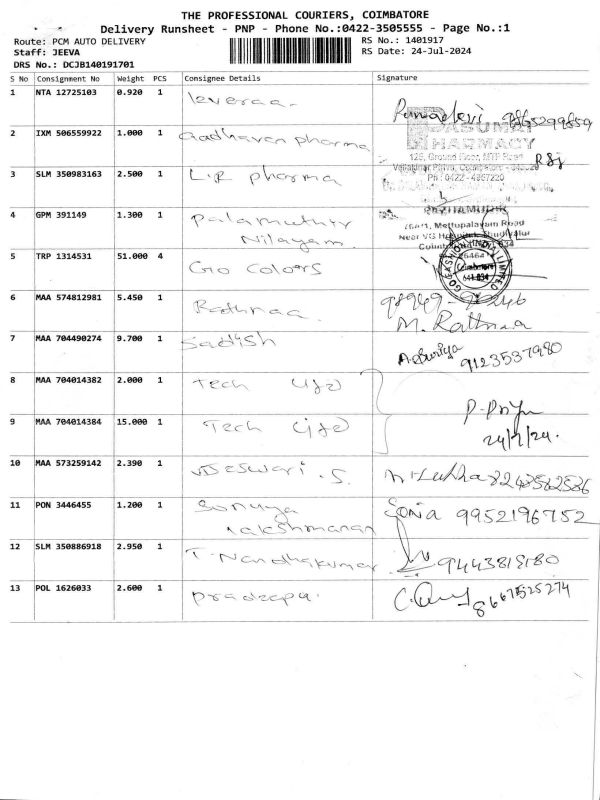 THE PROFESSIONAL COURIERS, COIMBATORE
Delivery Runsheet - PNP - Phone No.:0422-3505555 - Page No.:1
Route: PCM AUTO DELIVERY
RS No.: 1401917
Staff: JEEVA
RS Date: 24-Jul-2024
DRS No.: DCJB140191701
S No Consignment No Weight PCS Consignee Details Signature
1 NTA 12725103 0.920 1
2 IXM 506559922 1.000 1 aadhavan pharma
PHARMACY
3 SLM 350983163 2.500 1 L.R pharma
Ph : 0422 - 4367220
4 GPM 391149 1.300 1 Palamuthir
Nilayam
Mettupalayam Road
5 TRP 1314531 51.000 4 Go Colors
GO FASHION INDIA LIMITED
Coimbatore
641 034
6 MAA 574812981 5.450 1 Rathnaa
M. Rathnaa
7 MAA 704490274 9.700 1 Sadish
A. Suriya
9123537980
8 MAA 704014382 2.000 1 Tech
9 MAA 704014384 15.000 1 Tech
P. Priya
24/7/24.
10 MAA 573259142 2.390 1
11 PON 3446455 1.200 1 Lakshmanan Sonia 9952196752
12 SLM 350886918 2.950 1 T. Nandhakumar
13 POL 1626033 2.600 1 Pradeepa.
8667525274